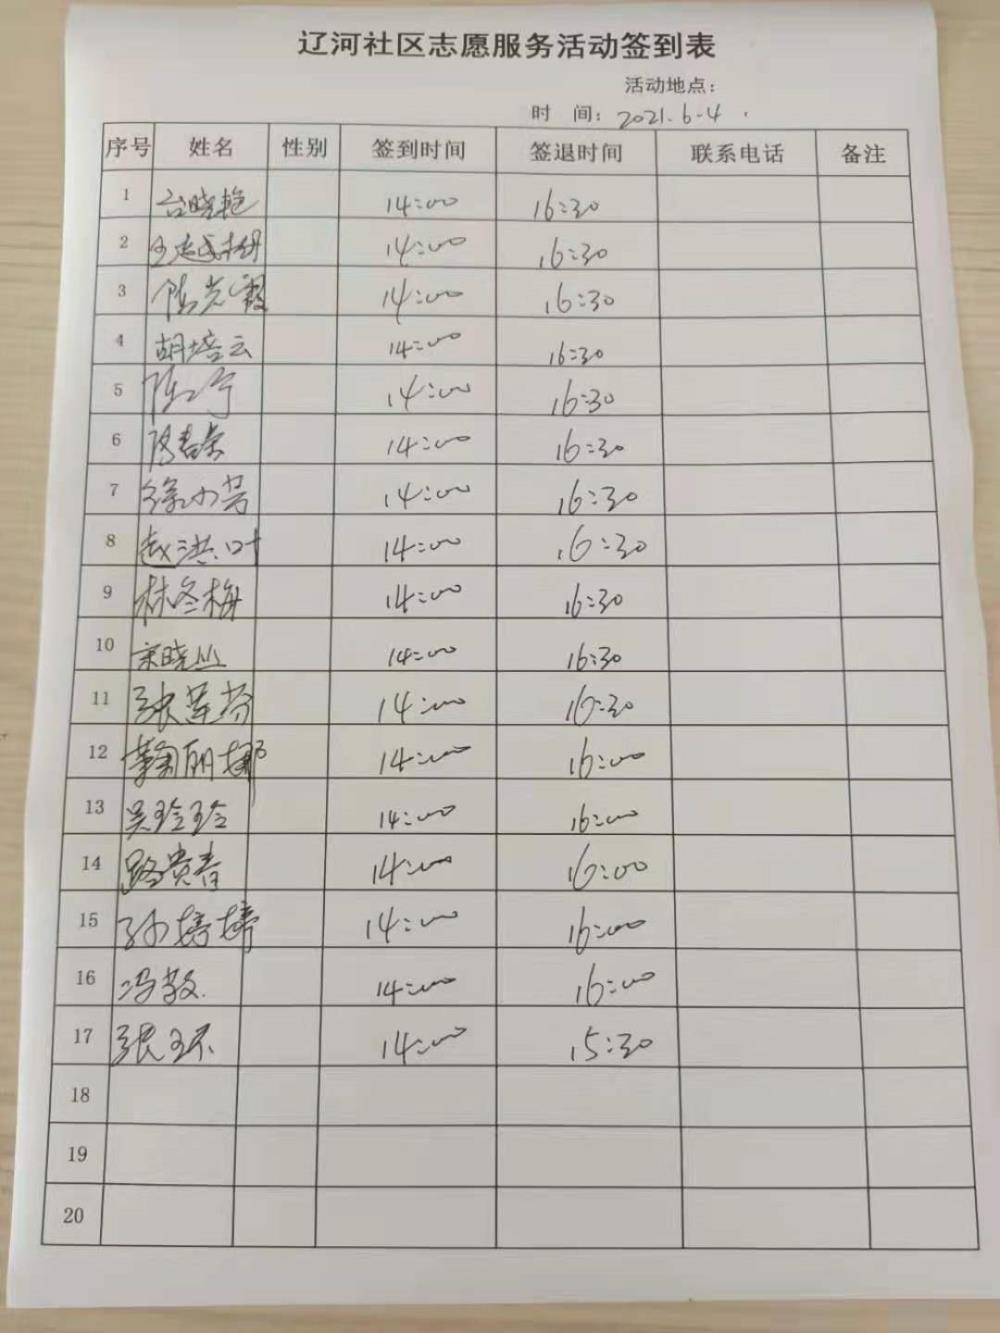 辽河社区志愿服务活动签到表
活动地点：
时 间：2021.6-4
序号 姓名 性别 签到时间 签退时间 联系电话 备注
1 台晓艳 14:00 16:30
2 14:00 16:30
3 陈光霞 14:00 16:30
4 胡培云 14:00 16:30
5 陈宁 14:00 16:30
6 14:00 16:30
7 徐小芳 14:00 16:30
8 赵洪叶 14:00 16:30
9 林冬梅 14:00 16:30
10 宋晓丛 14:00 16:30
11 张莲芬 14:00 16:30
12 鞠丽娜 14:00 16:00
13 吴玲玲 14:00 16:00
14 路贵春 14:00 16:00
15 孙婷婷 14:00 16:00
16 冯敏 14:00 16:00
17 张环 14:00 15:30
18
19
20